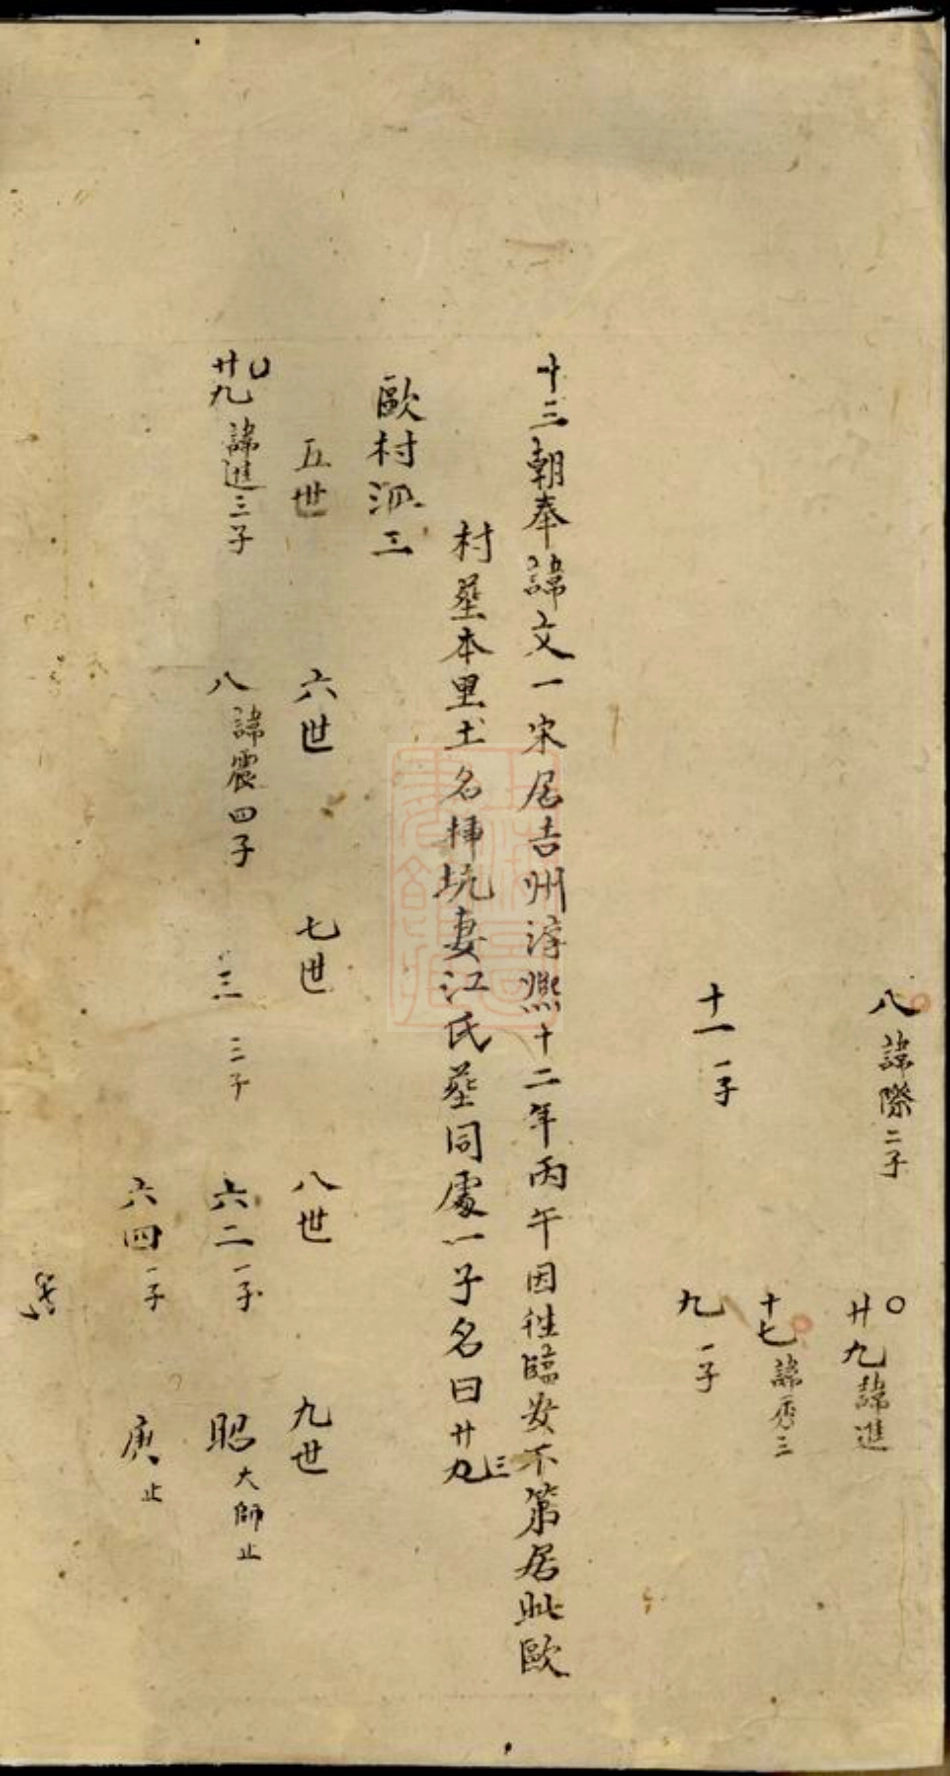 八 諱際二子
廿九 諱進
十七 諱秀三
十一 一子
九 一子
十三朝奉諱文一宋居吉州淳熙十二年丙午因往臨安不第居此歐
村葬本里土名坑妻江氏葬同處一子名曰廿九
歐村派三
五世 六世 七世 八世 九世
廿九 諱進三子 八 諱震四子 三 三子 六二 一子 昭 大師止
六四 一子 庚 止